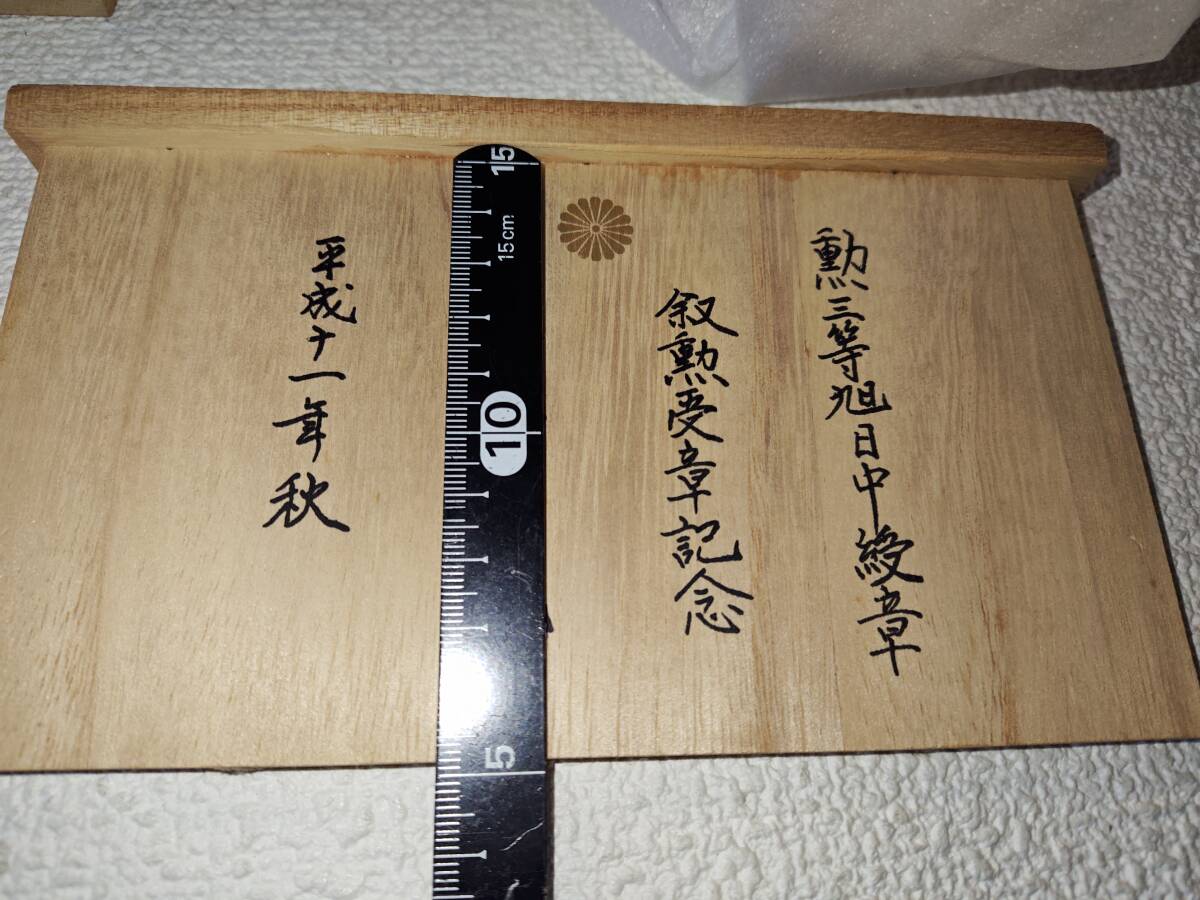 勲三等旭日中綬章
叙勲受章記念
平成十一年秋
15
15cm
10
5